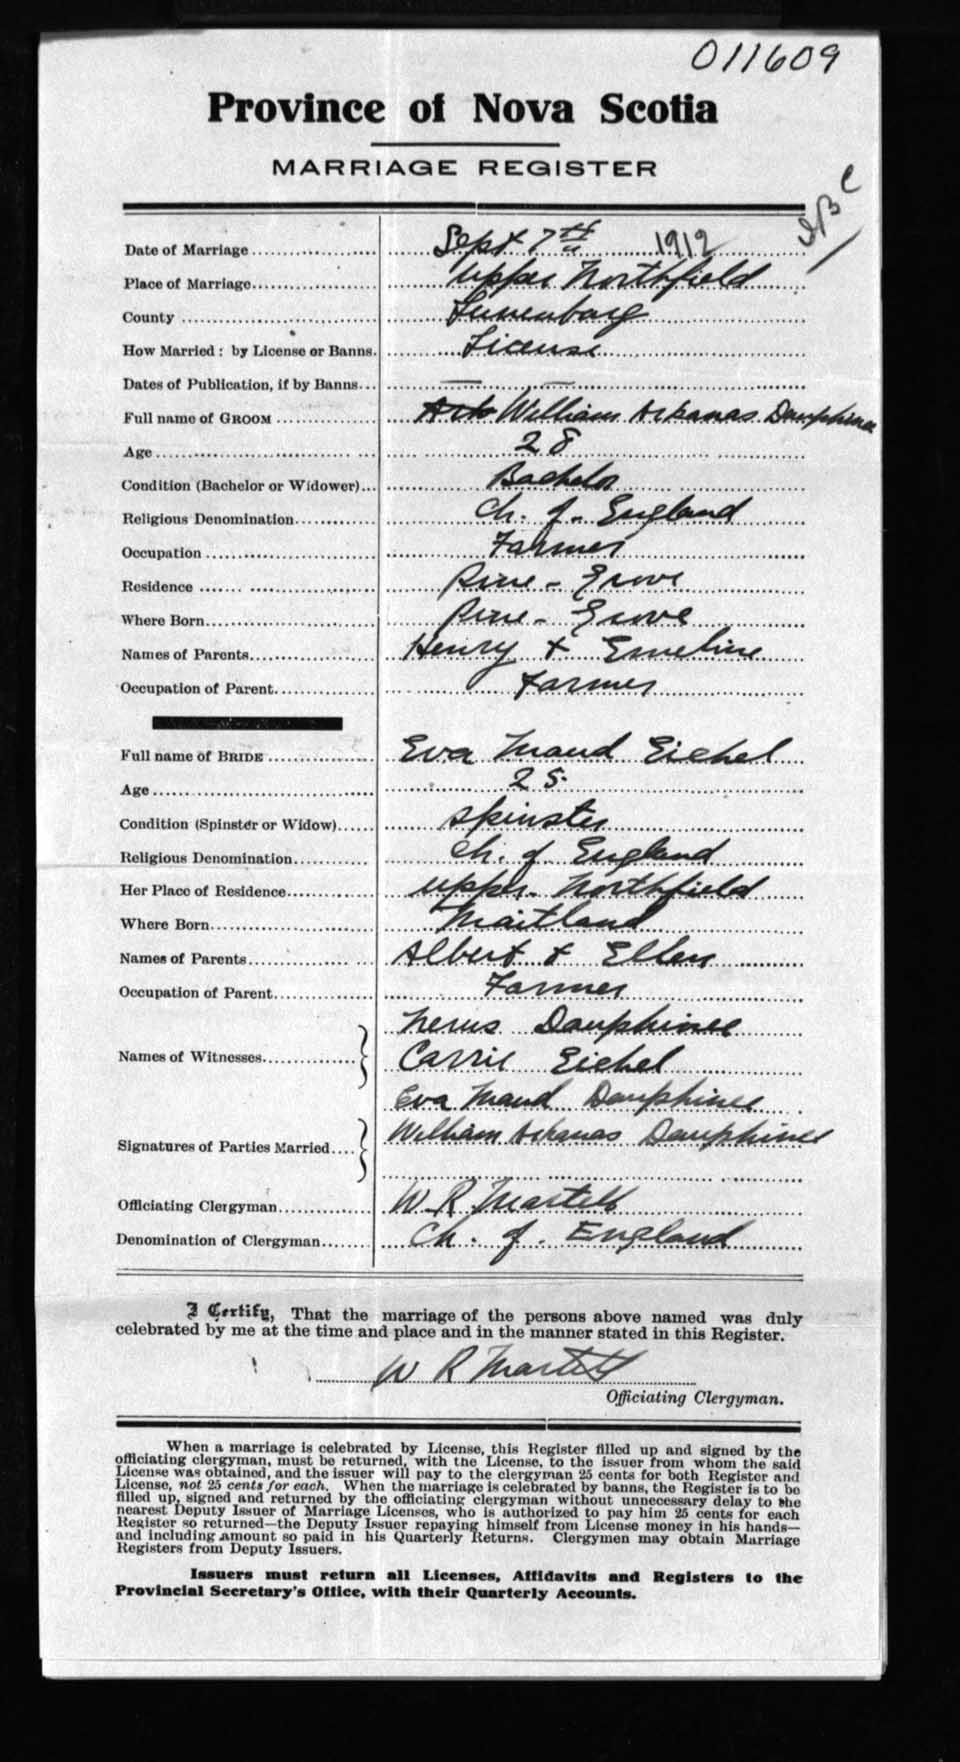 011609
Province of Nova Scotia
MARRIAGE REGISTER
Date of Marriage Sept 7th 1912
Place of Marriage Upper Northfield
County Lunenburg
How Married: by License or Banns. License
Dates of Publication, if by Banns — —
Full name of GROOM William Arkanas Dauphinee
Age 28
Condition (Bachelor or Widower) Bachelor
Religious Denomination Ch. of England
Occupation Farmer
Residence Pine-Grove
Where Born Pine-Grove
Names of Parents Henry & Emeline
Occupation of Parent Farmer
Full name of BRIDE Eva Maud Eichel
Age 25
Condition (Spinster or Widow) Spinster
Religious Denomination Ch. of England
Her Place of Residence Upper Northfield
Where Born Maitland
Names of Parents Albert & Ellen
Occupation of Parent Farmer
Dauphinee
Names of Witnesses Carrie Eichel
Eva Maud Dauphinee
Signatures of Parties Married William Arkanas Dauphinee
Officiating Clergyman W R Martell
Denomination of Clergyman Ch. of England
I Certify, That the marriage of the persons above named was duly
celebrated by me at the time and place and in the manner stated in this Register.
W R Martell
Officiating Clergyman.
When a marriage is celebrated by License, this Register filled up and signed by the
officiating clergyman, must be returned, with the License, to the issuer from whom the said
License was obtained, and the issuer will pay to the clergyman 25 cents for both Register and
License, not 25 cents for each. When the marriage is celebrated by banns, the Register is to be
filled up, signed and returned by the officiating clergyman without unnecessary delay to the
nearest Deputy Issuer of Marriage Licenses, who is authorized to pay him 25 cents for each
Register so returned—the Deputy Issuer repaying himself from License money in his hands—
and including amount so paid in his Quarterly Returns. Clergymen may obtain Marriage
Registers from Deputy Issuers.
Issuers must return all Licenses, Affidavits and Registers to the
Provincial Secretary's Office, with their Quarterly Accounts.